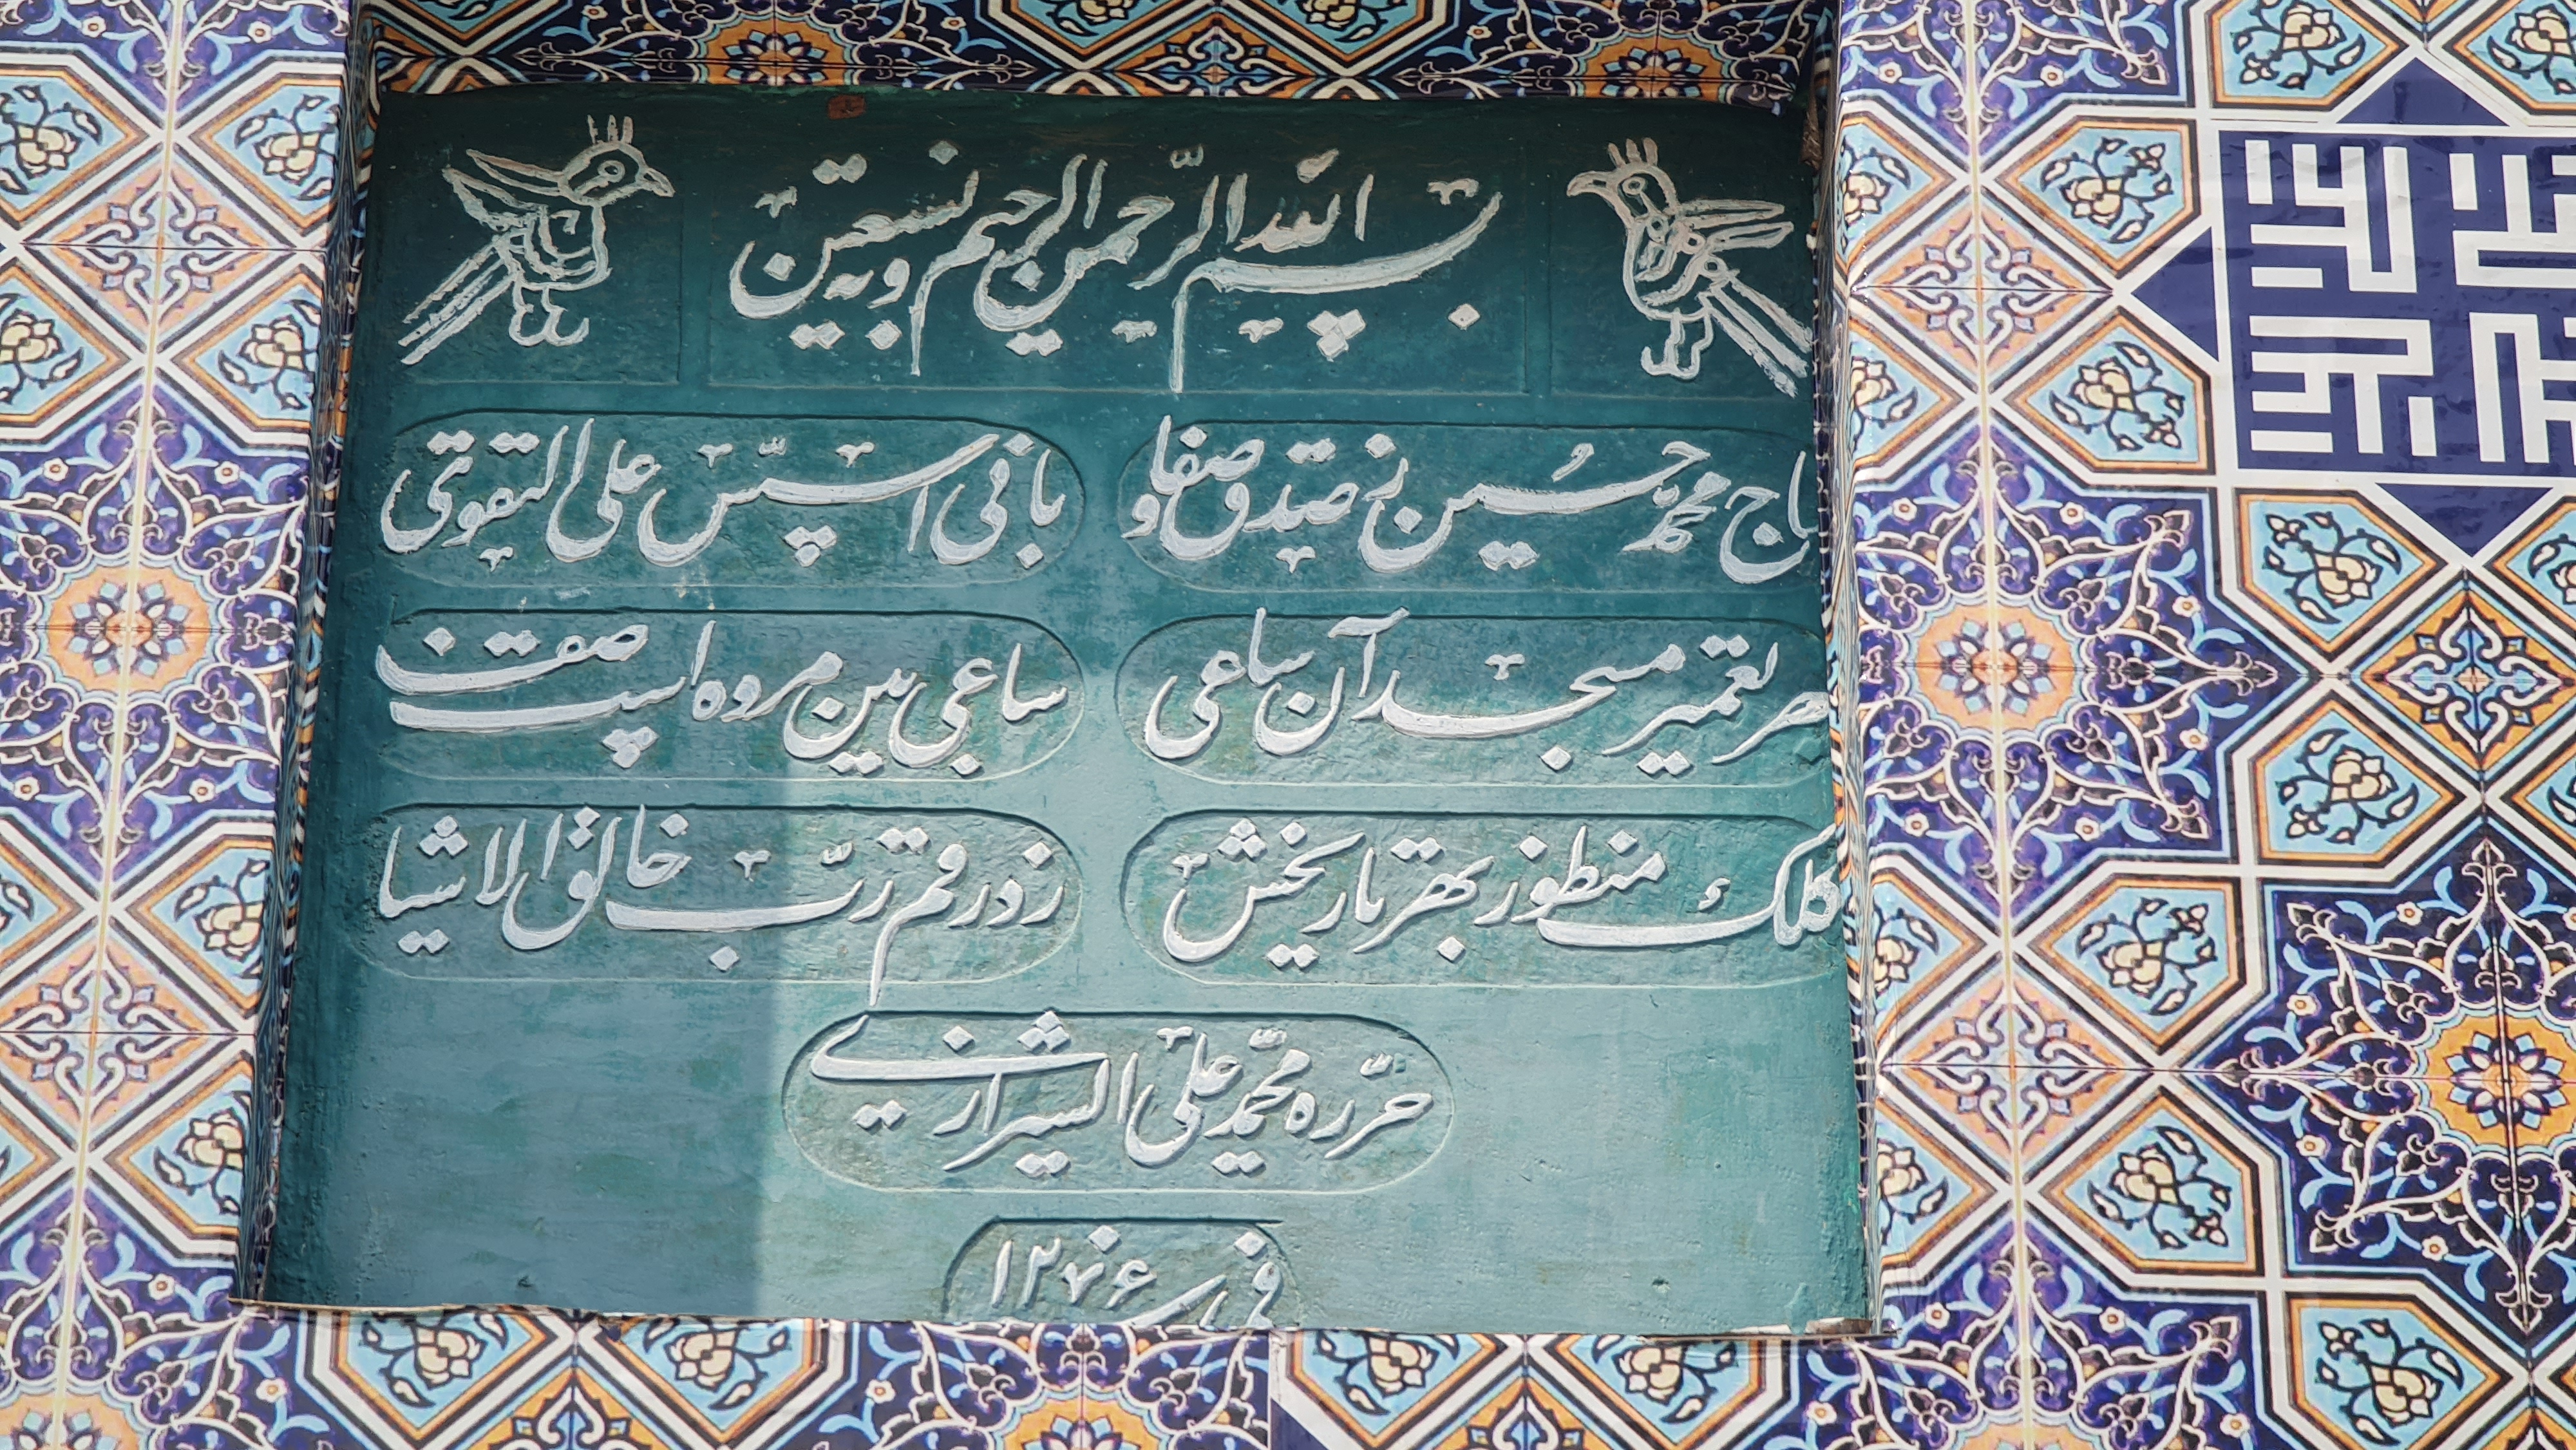 بسم الله الرّحمن الرحیم وبه نستعین
حاج محمّد حُسین ز صدق و صفا و
بانی اسّس علی التقوی
هر تعمیر مسجد آن ساعی
ساعی بین مروه است صفا
کلک منظور بهر تاریخش
زد رقم ربّ خالق الاشیا
حرّره محمّد علی الشیرازی
فی سنه ۱۲۷۶